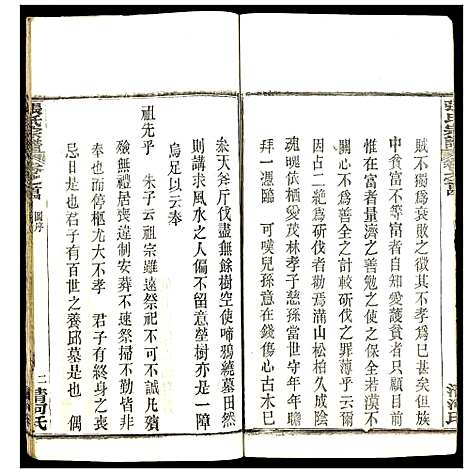 賊不獨爲衰敗之徵其不孝爲巳甚矣然在族
貧富不等富者自知愛護貧者只顧目前
惟在富者量濟之善勉之使之保全若漠不
關心不爲善全之計較斫伐之罪薄乎云爾
因占二絶爲斫伐者勸焉滿山松柏久成陰
魂魄依栖愛茂林孝子慈孫當世守年年瞻
拜一憑臨　可嘆兒孫意在錢傷心古木巳
叅天斧斤伐盡無餘樹空使啼鴉繞墓田然
則講求風水之人偏不留意塋樹亦是一障
烏足以云奉
祖先乎　朱子云祖宗雖遠祭祀不可不誠凡殯
殮無禮居喪違制安葬不速祭掃不勤皆非
奉也而停柩尤大不孝　君子有終身之喪
忌日是也君子有百世之養邱墓是也　偶
張氏宗譜
圖序
二
清河氏